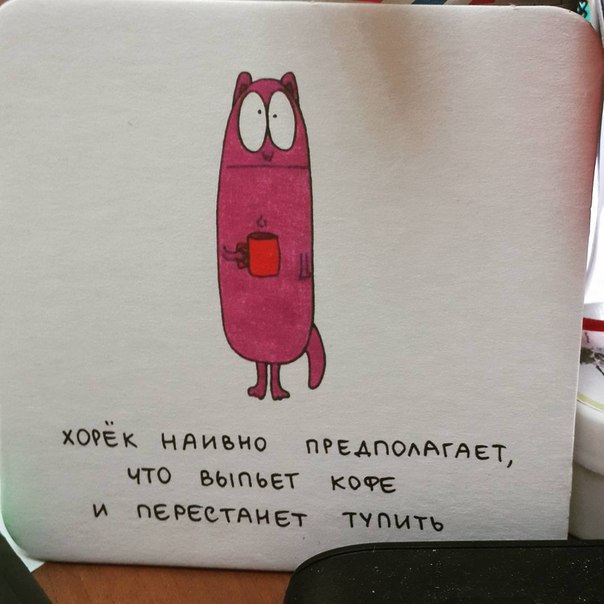 ХОРЁК НАИВНО ПРЕДПОЛАГАЕТ,
ЧТО ВЫПЬЕТ КОФЕ
И ПЕРЕСТАНЕТ ТУПИТЬ